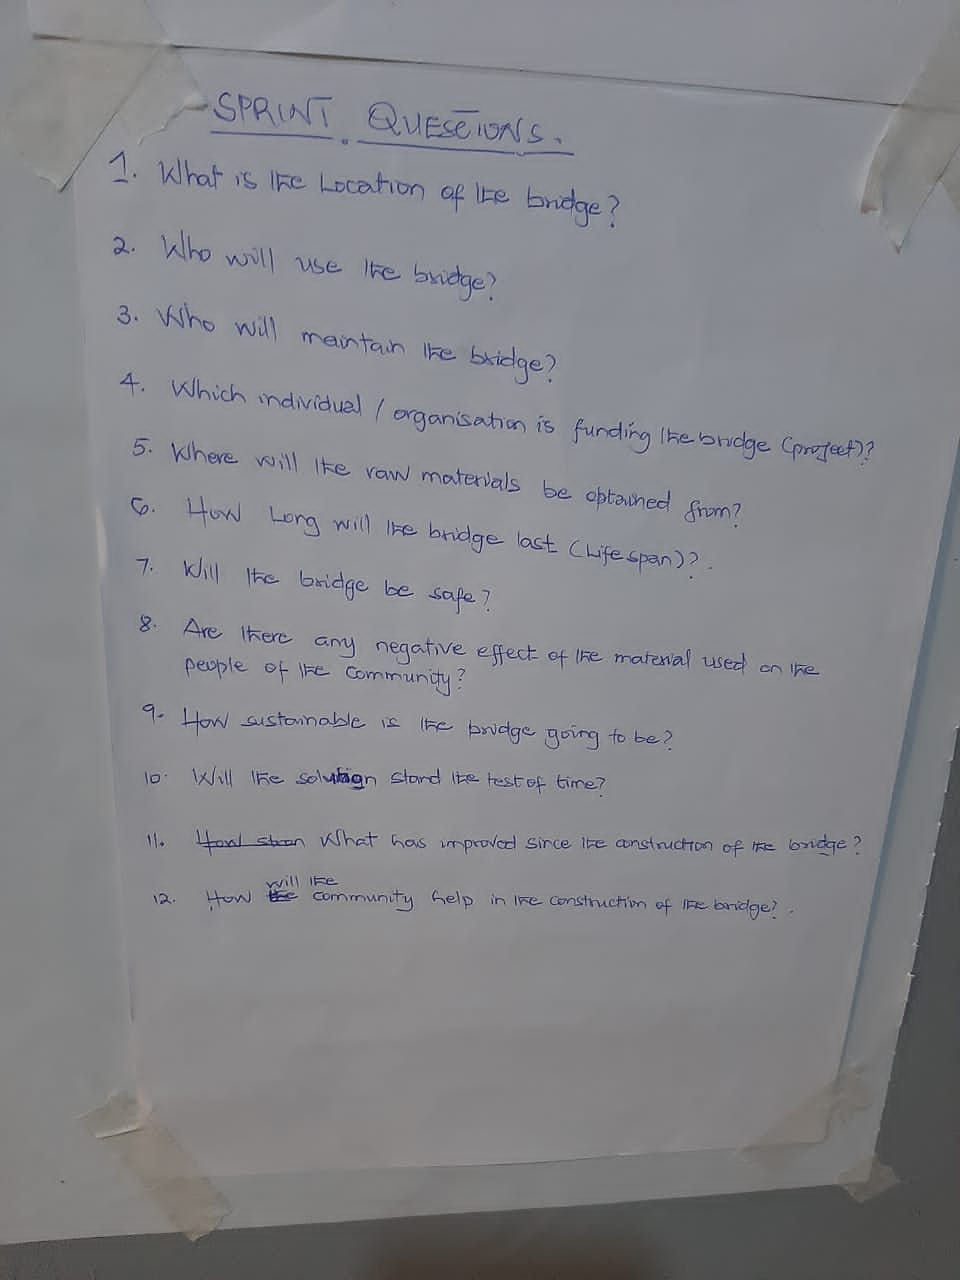 SPRINT QUESTIONS.
1. What is the Location of the bridge?
2. Who will use the bridge?
3. Who will maintain the bridge?
4. Which individual / organisation is funding the bridge (project)?
5. Where will the raw materials be obtained from?
6. How Long will the bridge last (Life span)?.
7. Will the bridge be safe?
8. Are there any negative effect of the material used on the
people of the community?
9. How sustainable is the bridge going to be?
10. Will the solution stand the test of time?
11. What has improved since the construction of the bridge?
12. How will the community help in the construction of the bridge?.